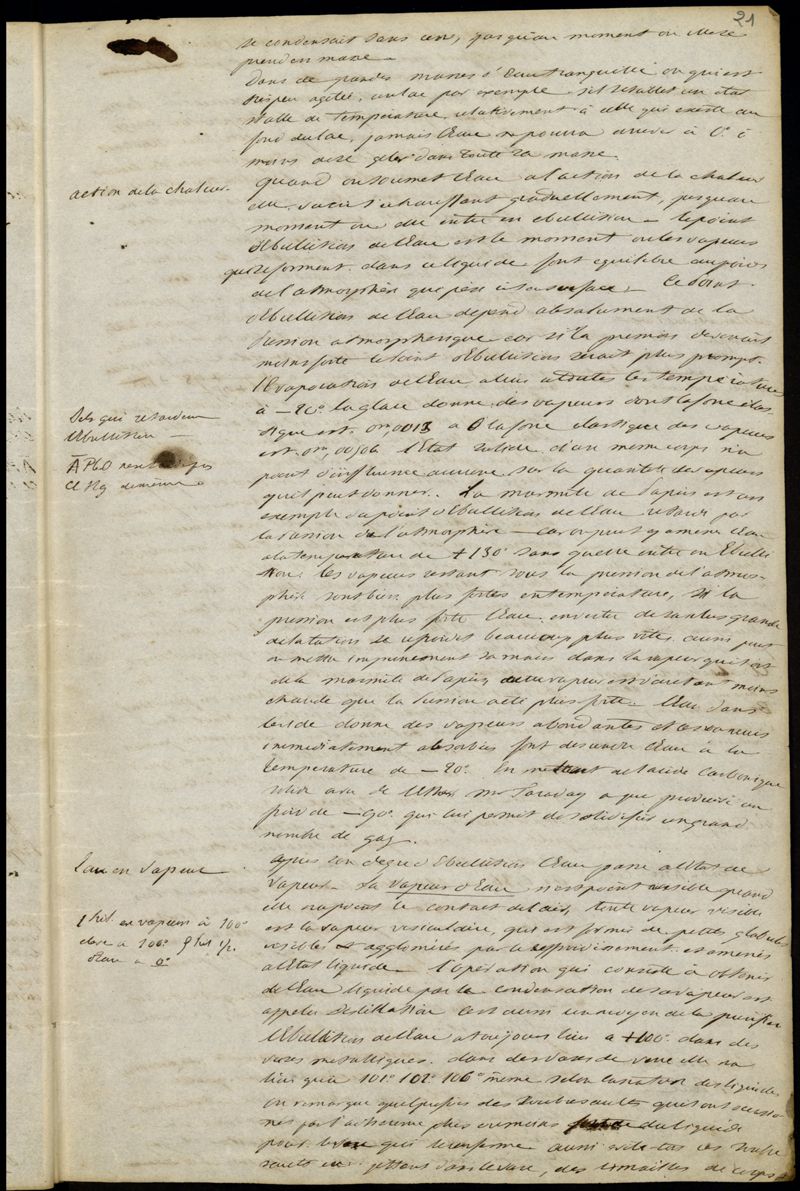 21
se condensait sans cesse, jusqu'au moment où elle se
prend en masse
Dans de grandes masses d'Eau tranquille ou qui est
très peu agitée, un lac par exemple s'il s'établit un état
stable de température relativement à celle qui existe au
fond du lac, jamais l'Eau ne pourra arriver à 0° à
moins de se geler dans toute sa masse.
action de la chaleur.
quand on soumet l'Eau a l'action de la chaleur
elle s'échauffant graduellement, jusqu'au
moment ou elle entre en ebullition — le point
d'Ebullition de l'Eau est le moment ou les vapeurs
qui se forment dans ce liquide font equilibre au poids
de l'atmosphère qui pèse à sa surface — Ce point
d'Ebullition de l'Eau depend absolument de la
pression atmospherique car si la pression devenait
moins forte le point d'Ebullition serait plus prompt.
l'Evaporation de l'Eau a lieu a toutes les temperatures
à —20° la glace donne des vapeurs dont la force élas
tique est 0m,0013 à 0 la force elastique des vapeurs
est 0m,00506 l'Etat solide d'un meme corps n'a
point d'influence aucune sur la quantité de vapeurs
qu'il peut donner. La marmite de Papin est un
Sels qui retardent
l'Ebullition —
exemple du point d'Ebullition de l'Eau retardé par
la pression de l'atmosphère — car on peut y amener l'Eau
a la temperature de +130° sans qu'elle entre en Ebulli
tion. les vapeurs restant sous la pression de l'atmos-
phère sont bien plus fortes en temperature, si la
pression est plus forte l'Eau en vertu de sa plus grande
dilatation se refroidit beaucoup plus vite. aussi peut
on mettre impunement sa main dans la vapeur qui sort
de la marmite de Papin, cette vapeur est d'autant moins
chaude que la pression a été plus forte. l'Eau dans
le vide donne des vapeurs abondantes et ces vapeurs
immediatement absorbées font descendre l'Eau à la
temperature de —20°. En mettant de l'acide Carbonique
solide avec de l'Ether Mr Faraday a pu produire un
froid de —90° qui lui permit de solidifier un grand
nombre de gaz.
Eau en Vapeur
après son degré d'Ebullition l'Eau passe a l'Etat de
Vapeur — La vapeur d'Eau n'est point visible quand
elle n'a point le contact de l'air, toute vapeur visible
1 lit. en vapeurs à 100°
est la vapeur vesiculaire, qui est formée de petits globules
visibles et agglomérés par le refroidissement et amenés
d'Eau à 0°
a l'Etat liquide — l'opération qui consiste à obtenir
de l'Eau liquide par la condensation de sa vapeur est
appelée Distillation c'est aussi un moyen de la purifier
l'Ebullition de l'Eau a toujours lieu à +100° dans des
vases metalliques. dans des vases de verre elle n'a
lieu qu'à 101° 102° 106° même selon la nature des liquides
on remarque quelquefois des soubresauts qui sont occasion
nés par l'adhérence plus ou moins du liquide
pour le vase qui le renferme aussi evite-t-on ces soubre
sauts en jettant dans le vase, des limailles de corps